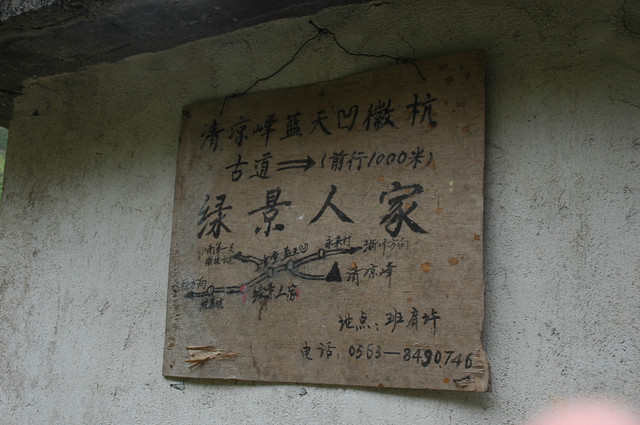 清凉峰蓝天凹徽杭
古道⇒(前行1000米)
绿景人家
蓝天凹
永来村
浙川方向
清凉峰
绿景人家
方向
地点:班肩坪
电话:0563—8490746